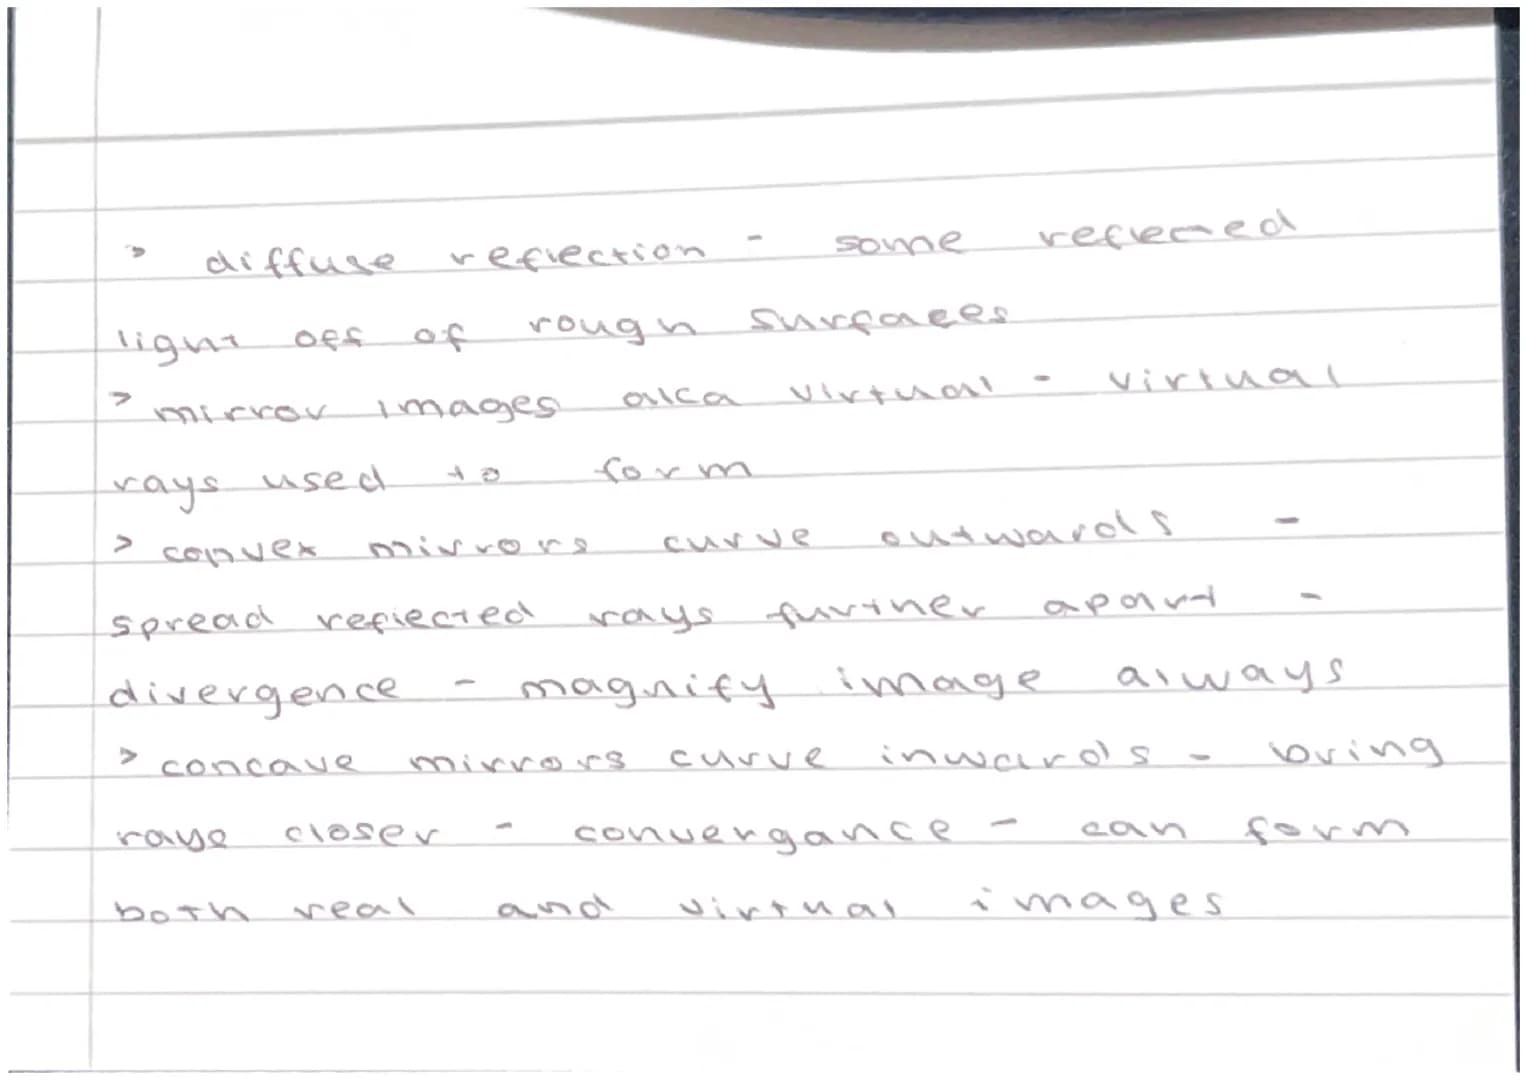 > diffuse reflection - some reflected
light off of rough surfaces
> mirror images aka virtual - virtual
rays used to form
> convex mirrors curve outwards -
spread reflected rays further apart -
divergence - magnify image always
> concave mirrors curve inwards - bring
rays closer - convergance - can form
both real and virtual images